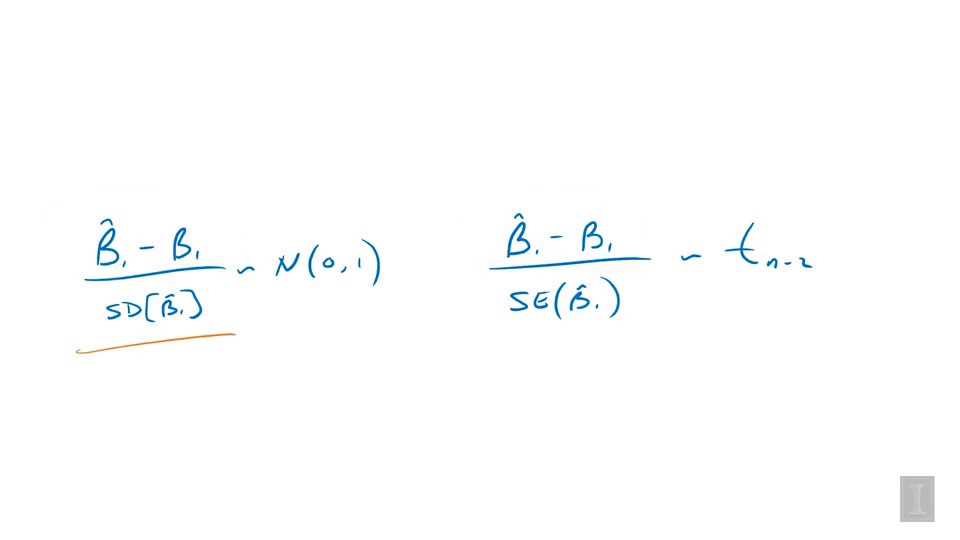 (β̂₁ − β₁) / SD[β̂₁] ~ N(0,1)
(β̂₁ − β₁) / SE(β̂₁) ~ tₙ₋₂
I